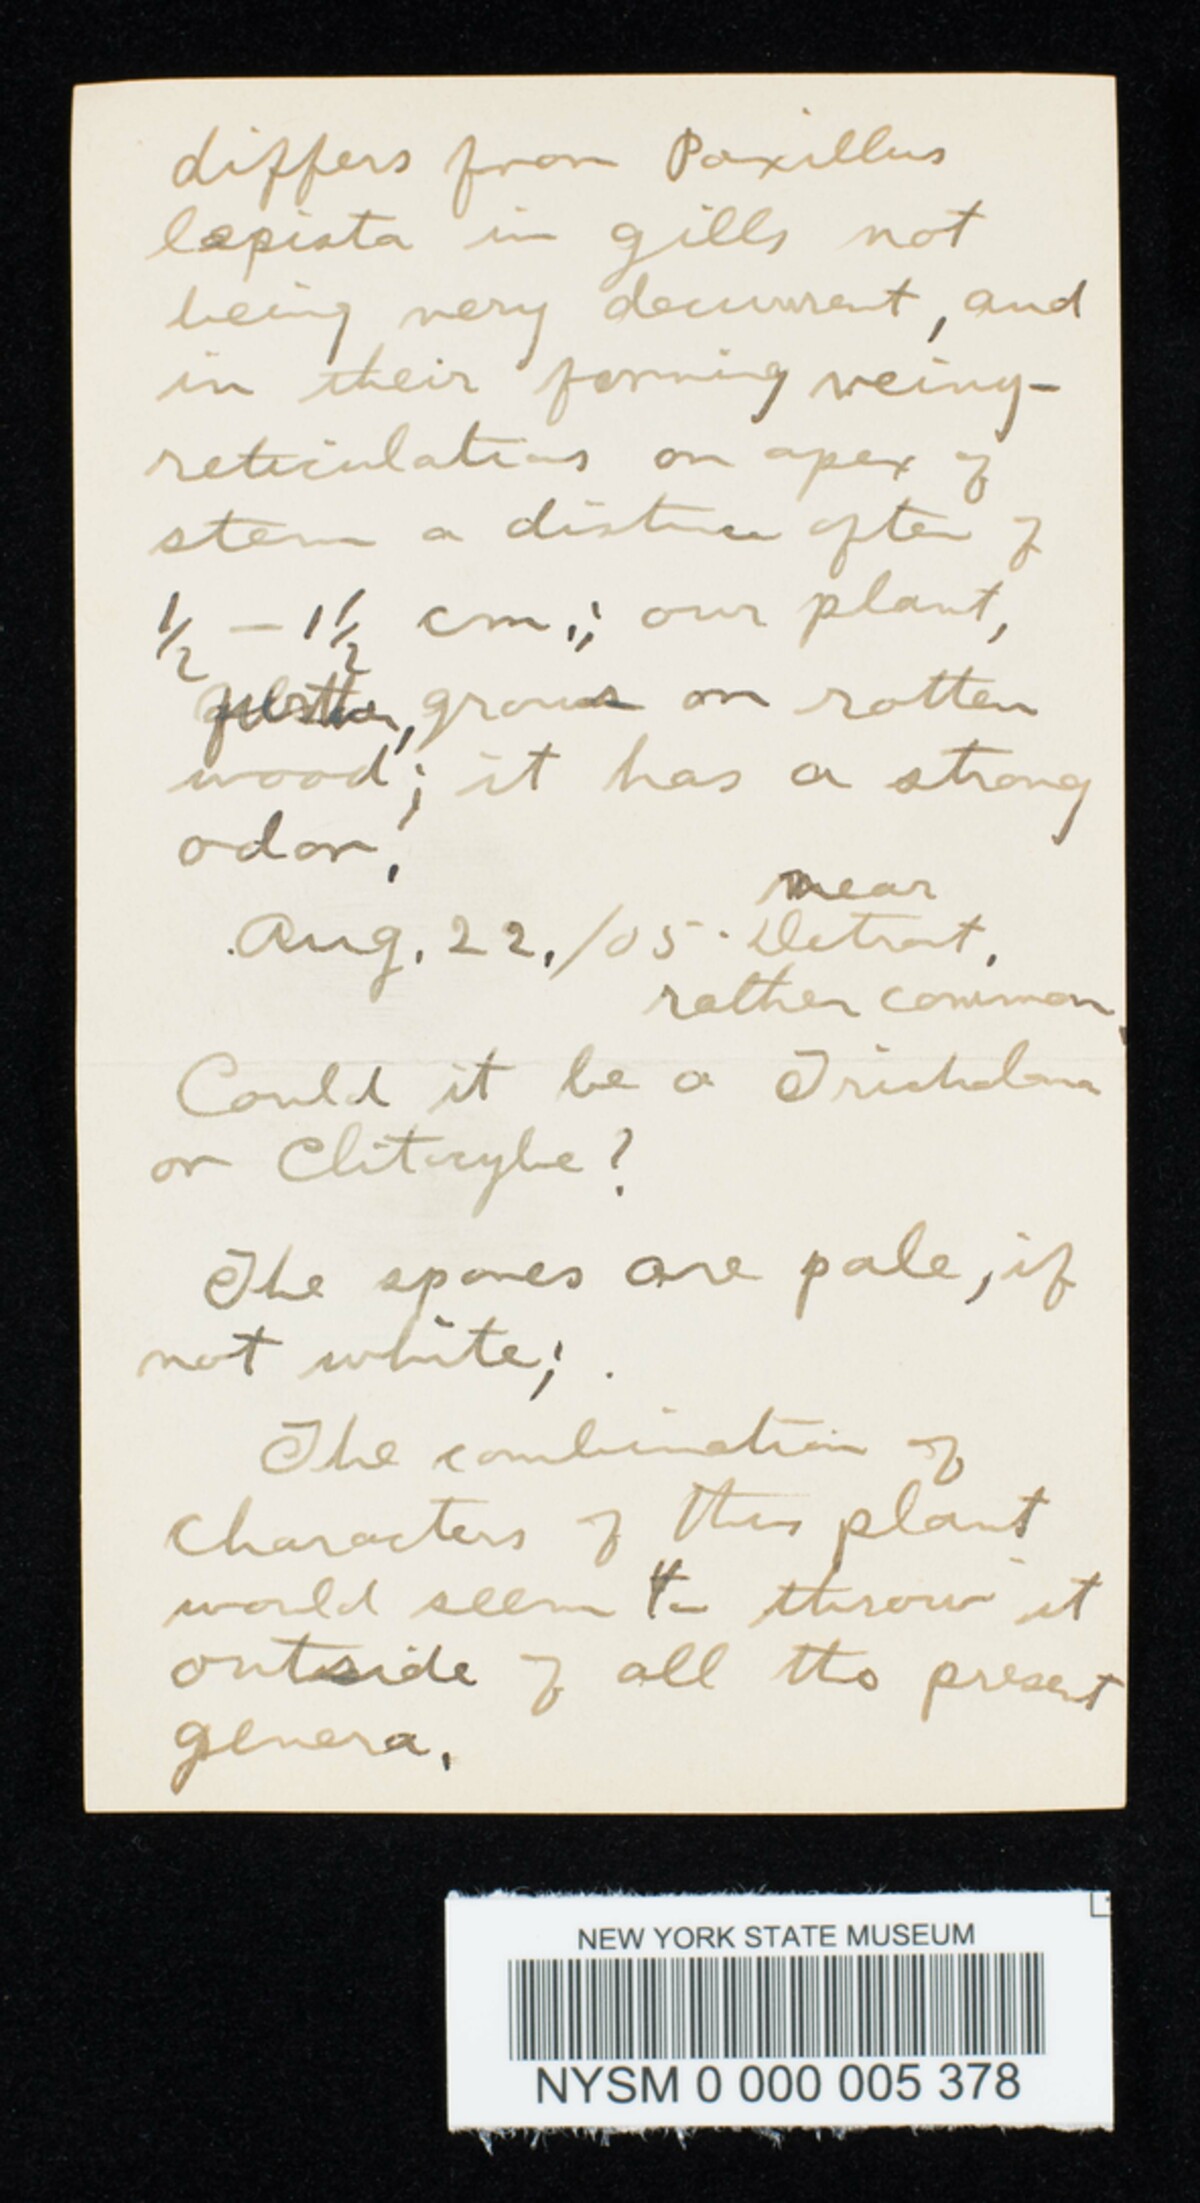 differs from Paxillus
lepista in gills not
being very decurrent, and
in their forming veiny-
reticulations on apex of
stem a distance often of
1/2 – 1 1/2 cm.; our plant,
grows on rotten
wood; it has a strong
odor.
near
Aug. 22, /05. Detroit,
rather common.
Could it be a Tricholoma
or Clitocybe?
The spores are pale, if
not white;.
The combination of
characters of this plant
would seem to throw it
outside of all the present
genera.
NEW YORK STATE MUSEUM
NYSM 0 000 005 378